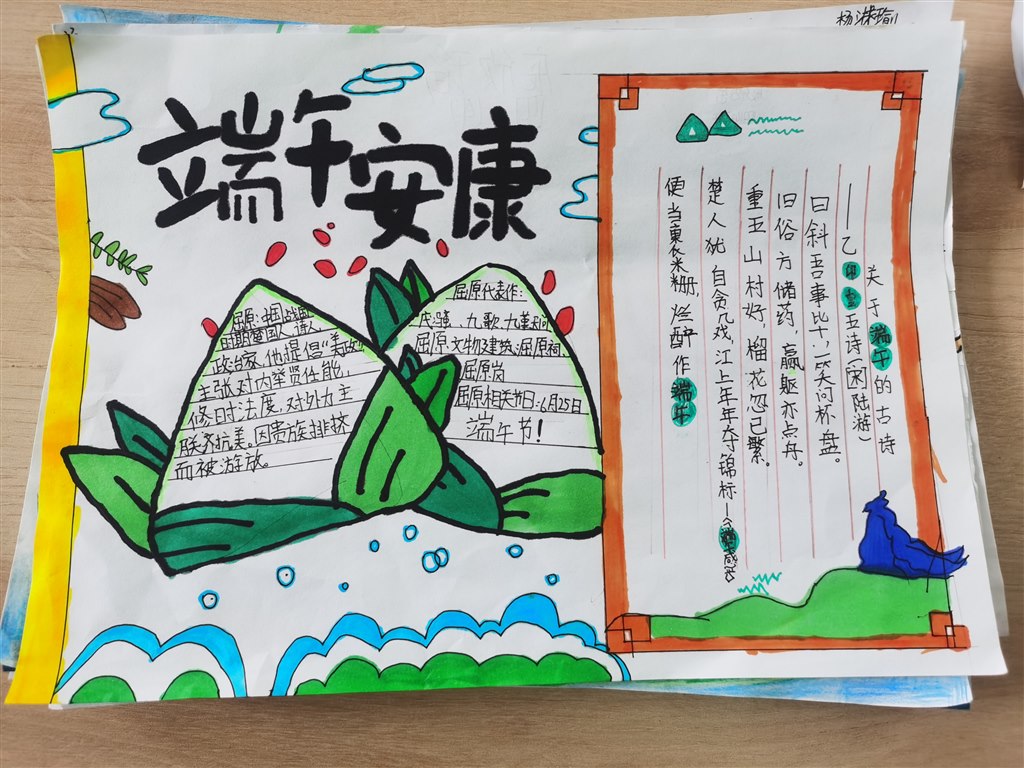 杨洣瑜
端午安康
屈原:中国战国
时期楚国人、诗人、
政治家,他提倡“美政”
主张对内举贤任能,
修日寸法度,对外力主
联齐抗美。因贵族排挤
而被游放。
屈原代表作:
九歌、九章、天问
屈原文物及建筑:屈原祠、
屈原岗
屈原相关节日:6月25日
端午节!
关于端午的古诗
——乙卯重五诗(宋陆游)
曰斜吾事毕,一笑问杯盘。
旧俗方储药,羸躯亦点丹。
重五山村好,榴花忽已繁。
楚人犹自贪儿戏,江上年年夺锦标
便当東
粣,烂醉作端午